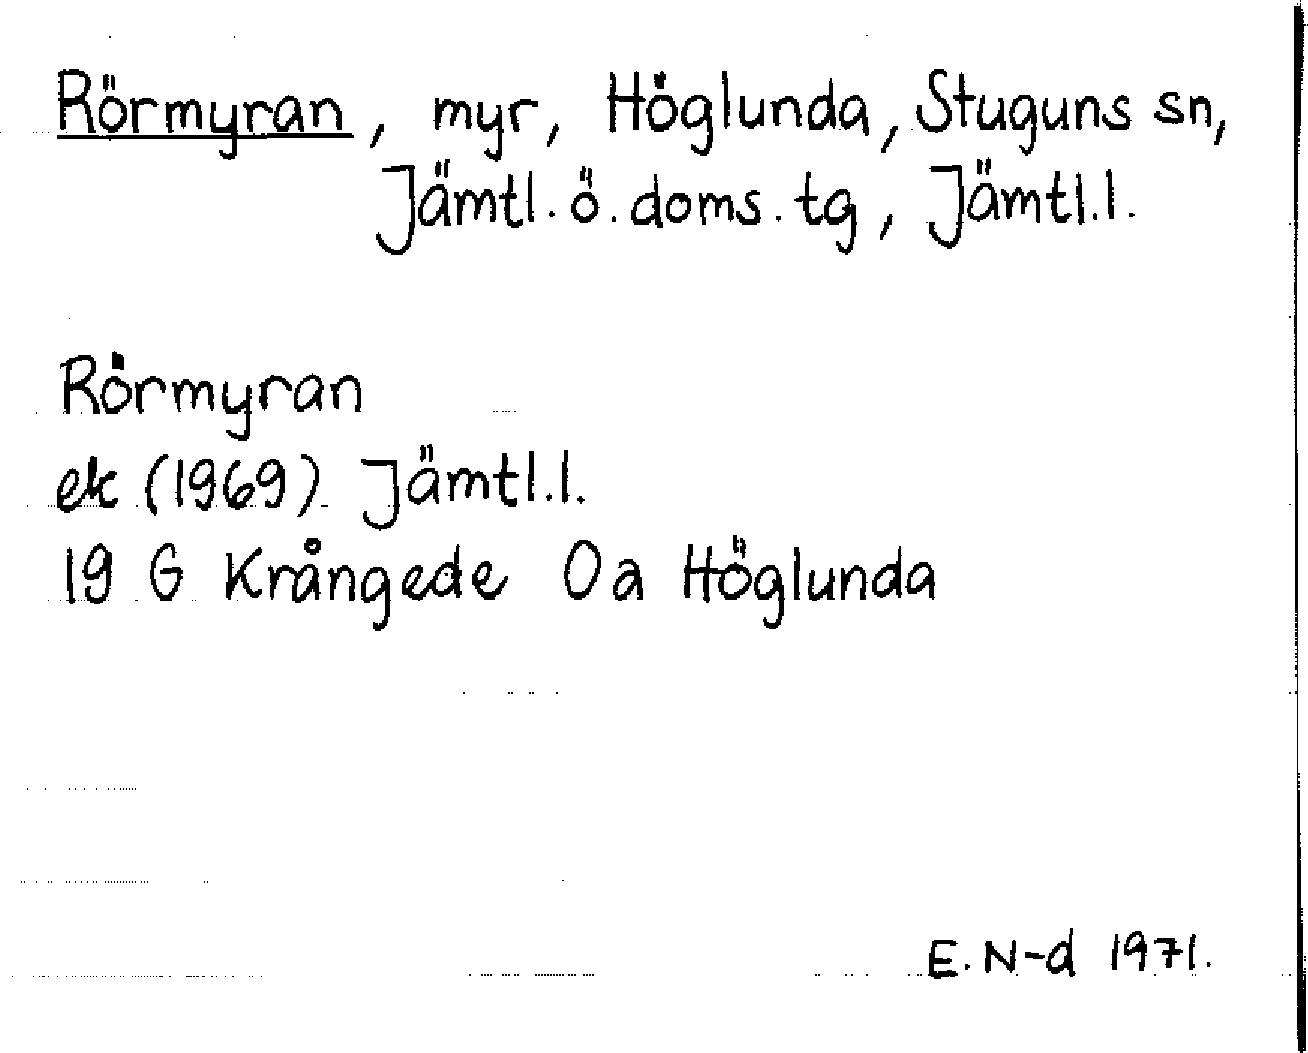 Rörmyran, myr, Höglunda, Stuguns sn,
Jämtl. ö. doms. tg, Jämtl.l.
Rörmyran
ek (1969) Jämtl.l.
19 G Krångede 0a Höglunda
E. N-d 1971.